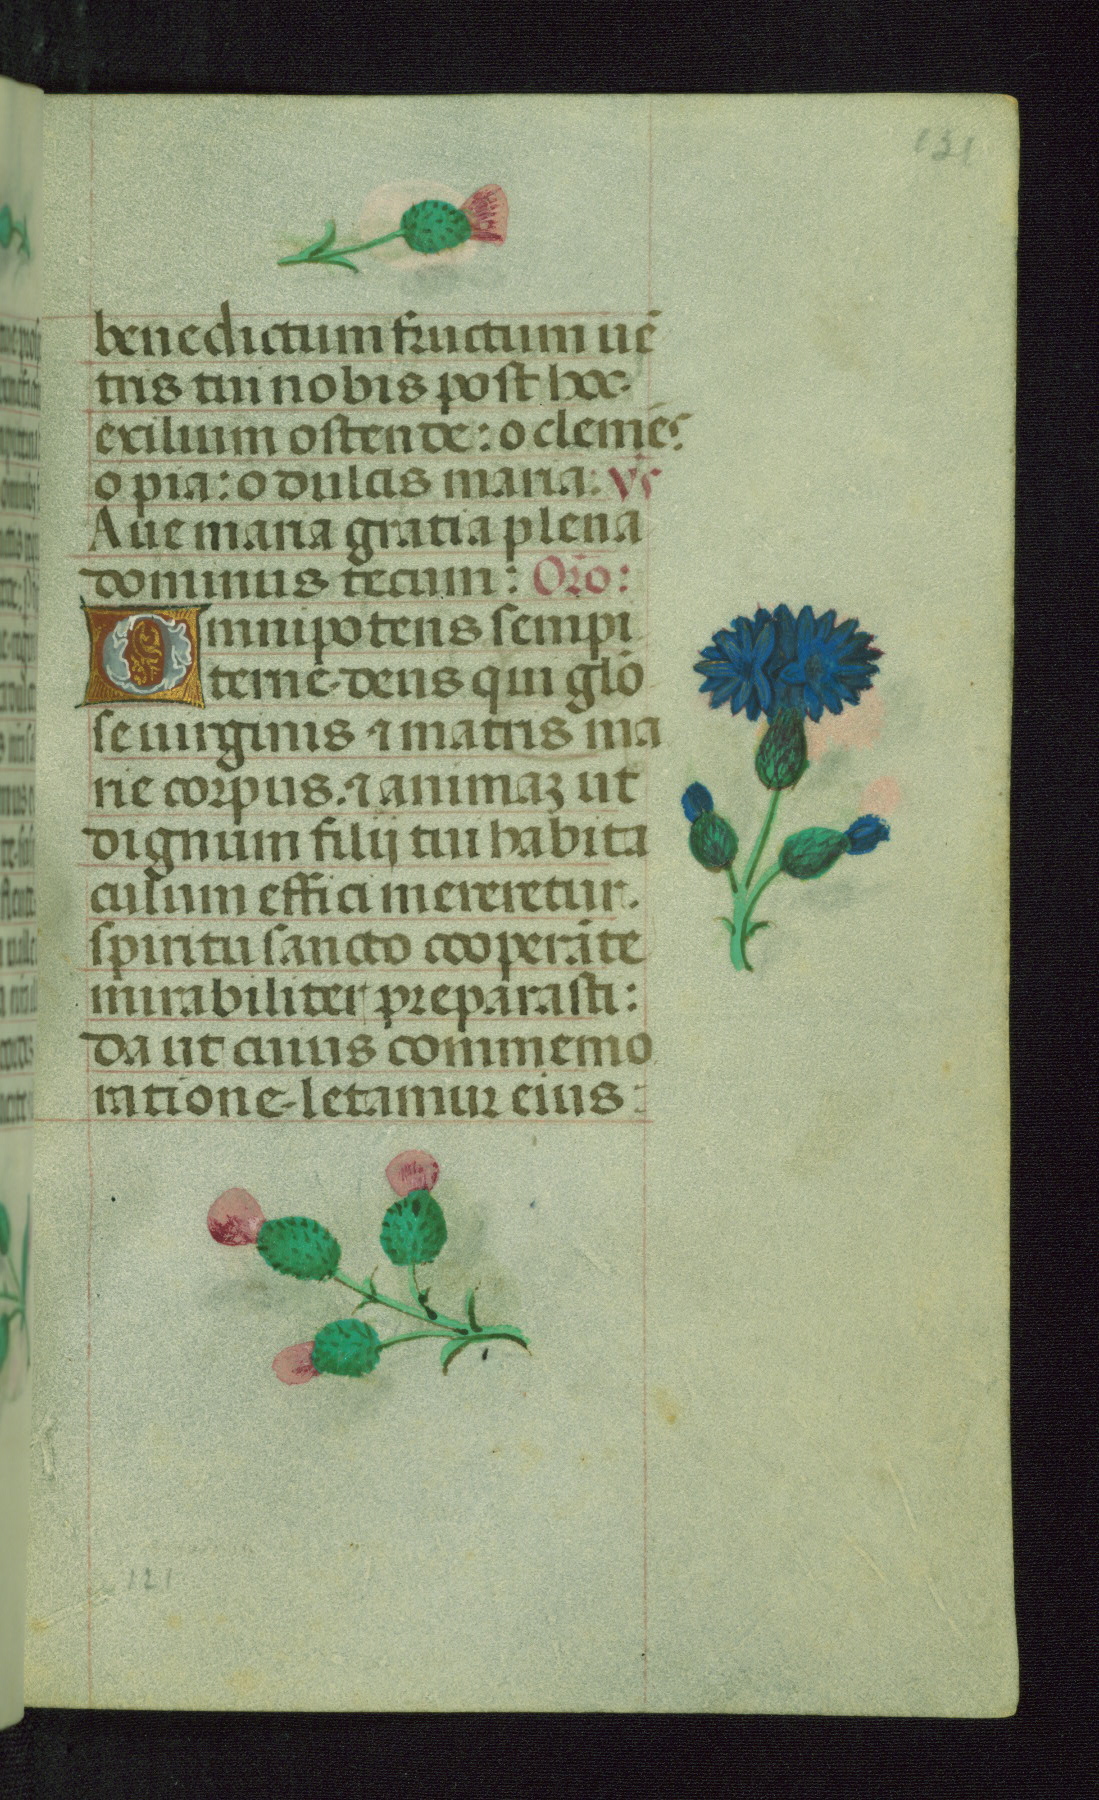 131
benedictum fructum uē
tris tui nobis post hoc
exilium ostende: o clemēs:
o pia: o dulcis maria: Vs
Aue maria gratia plena
dominus tecum: Oro:
Omnipotens sempi
terne deus qui glō
se uirginis ⁊ matris ma
rie corpus. ⁊ animaꝫ ut
dignum filij tui habita
culum effici mereretur.
spiritu sancto cooperāte
mirabiliter preparasti:
da ut cuius commemo
ratione letamur eius:
121